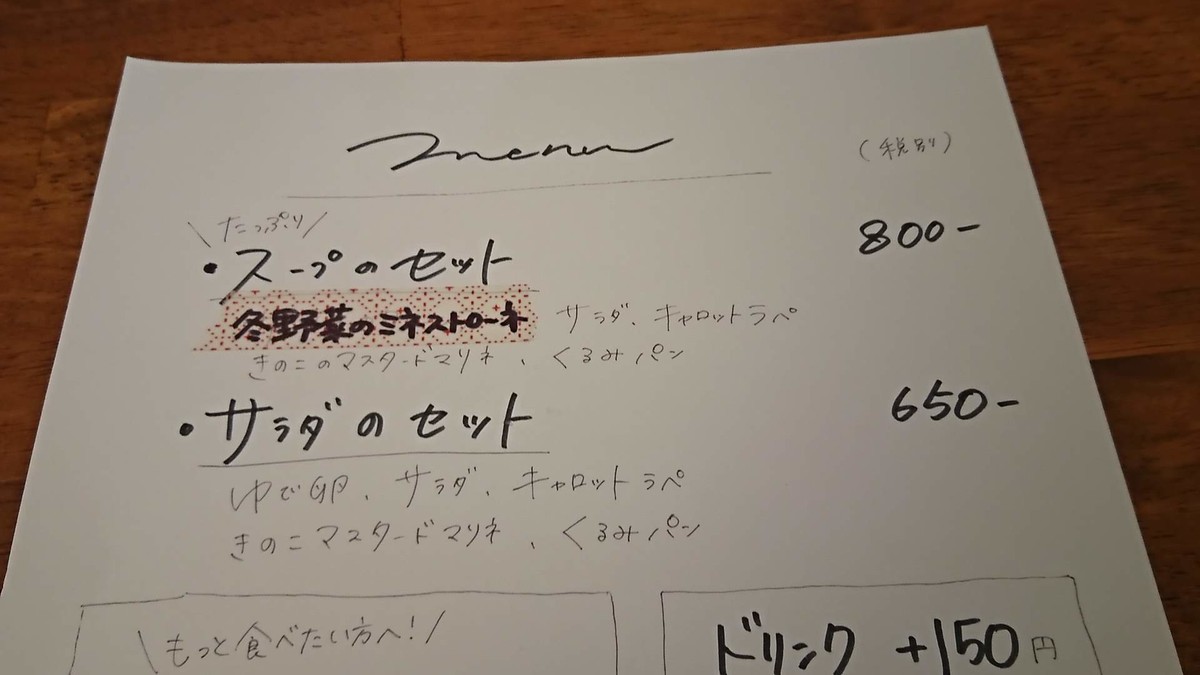 menu
(税別)
\たっぷり/
・スープのセット 800-
冬野菜のミネストローネ サラダ、キャロットラペ
きのこのマスタードマリネ、くるみパン
・サラダのセット 650-
ゆで卵、サラダ、キャロットラペ
きのこマスタードマリネ、くるみパン
\もっと食べたい方へ!/
ドリンク +150円